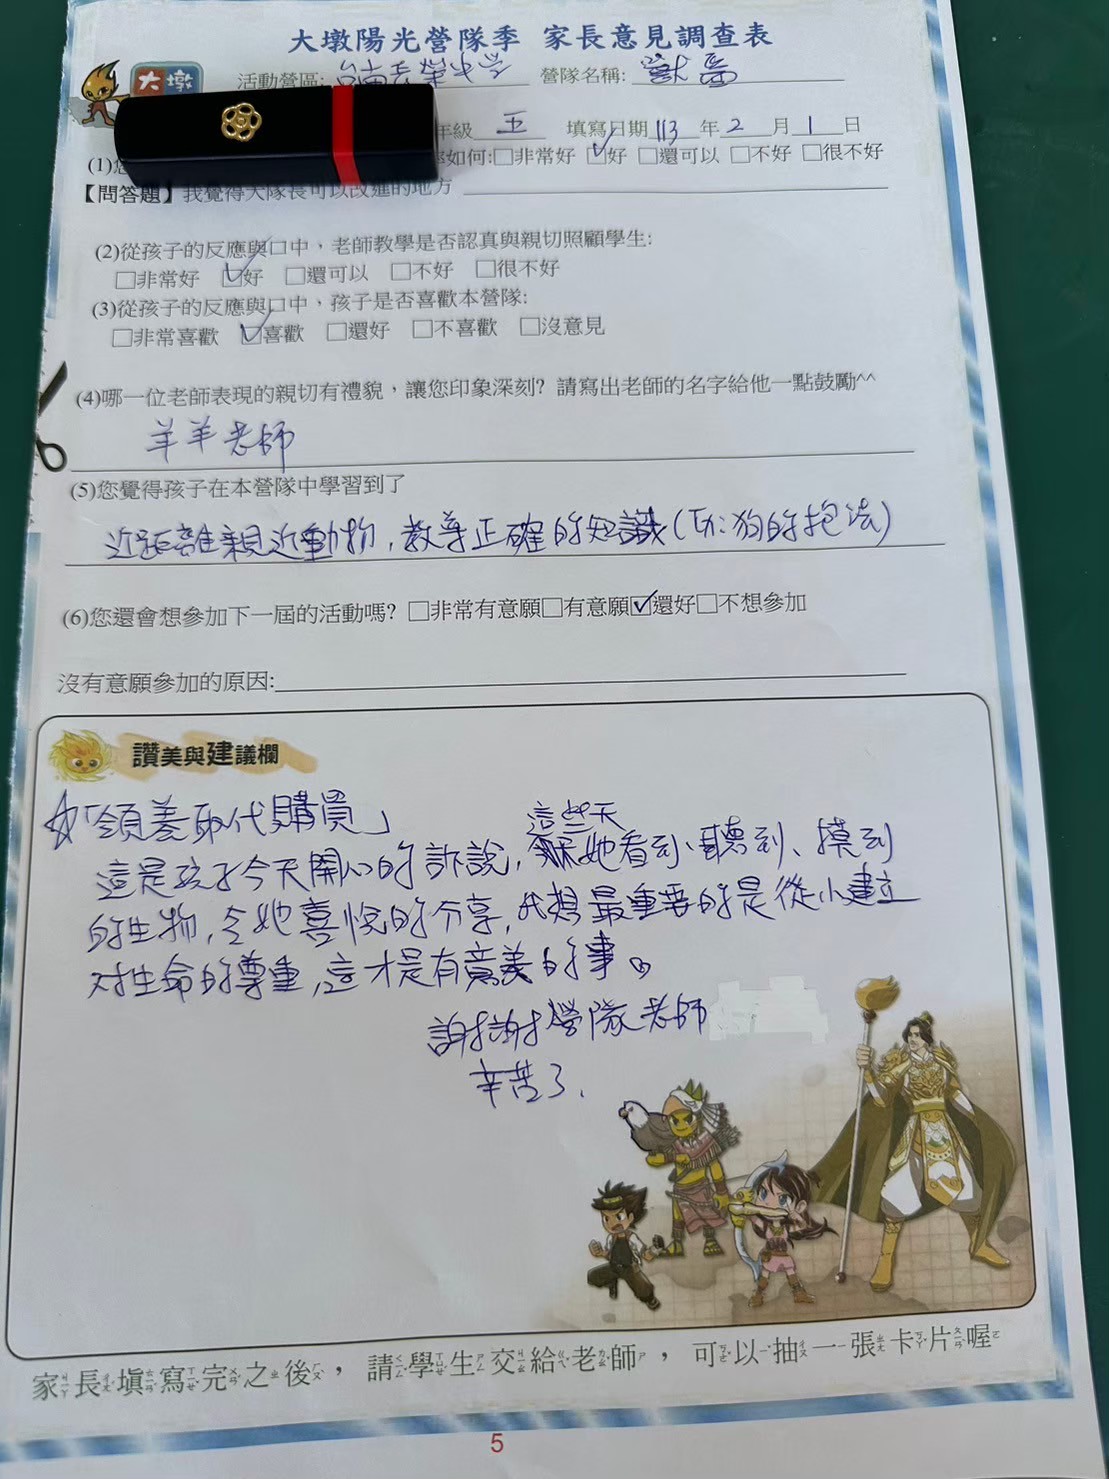 大墩陽光營隊季 家長意見調查表
大墩
活動營區: 台南長榮中學 營隊名稱: 獸醫
年級 五 填寫日期 113 年 2 月 1 日
(1)您 如何:□非常好 ☑好 □還可以 □不好 □很不好
【問答題】我覺得大隊長可以改進的地方
(2)從孩子的反應與口中、老師教學是否認真與親切照顧學生:
□非常好 ☑好 □還可以 □不好 □很不好
(3)從孩子的反應與口中、孩子是否喜歡本營隊:
□非常喜歡 ☑喜歡 □還好 □不喜歡 □沒意見
(4)哪一位老師表現的親切有禮貌，讓您印象深刻? 請寫出老師的名字給他一點鼓勵^^
羊羊老師
(5)您覺得孩子在本營隊中學習到了
近距離親近動物，教導正確的知識(如:狗的抱法)
(6)您還會想參加下一屆的活動嗎? □非常有意願□有意願☑還好□不想參加
沒有意願參加的原因:
讚美與建議欄
☆「領養取代購買」
這些天
這是孩子今天開心的訴說，她看到、聽到、摸到
的生物，令她喜悅的分享，我想最重要的是從小建立
對生命的尊重，這才是有意義的事。
謝謝營隊老師
辛苦了.
家長填寫完之後，請學生交給老師，可以抽一張卡片喔
5